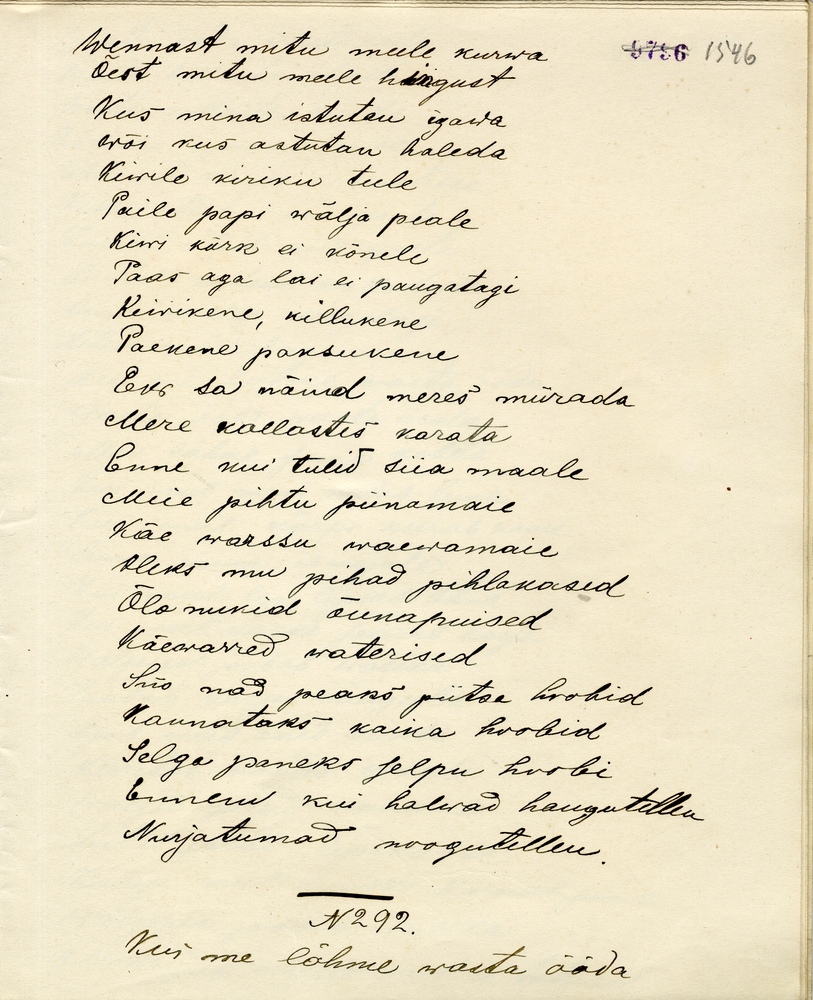 Wennast mitu meele kurwa
5796 1546
Õest mitu meele haigust
Kus mina istutan igawa
wõi kus astutan haleda
Kiwile kiriku teele
Paile papi wälja peale
Kiwi kärk ei kõnele
Paas aga lai ei paugatagi
Keiwikene, killukene
Paekene paksukene
Eks sa näind meres mürada
Mere kallastes karata
Enne kui tulid siia maale
Meie pihtu piinamaie
Käe warssu waewamaie
Oleks mu pihad pihlakased
Õla nukid õunapuised
Käewarred waterised
Siis nad peaks piitsa hoobid
Kannataks kaika hoobid
Selga paneks selpu hoobi
Ennem kui halwad haugutellu
Nurjatumad noogutellen.
N 292.
Kui me lähme wasta ööda